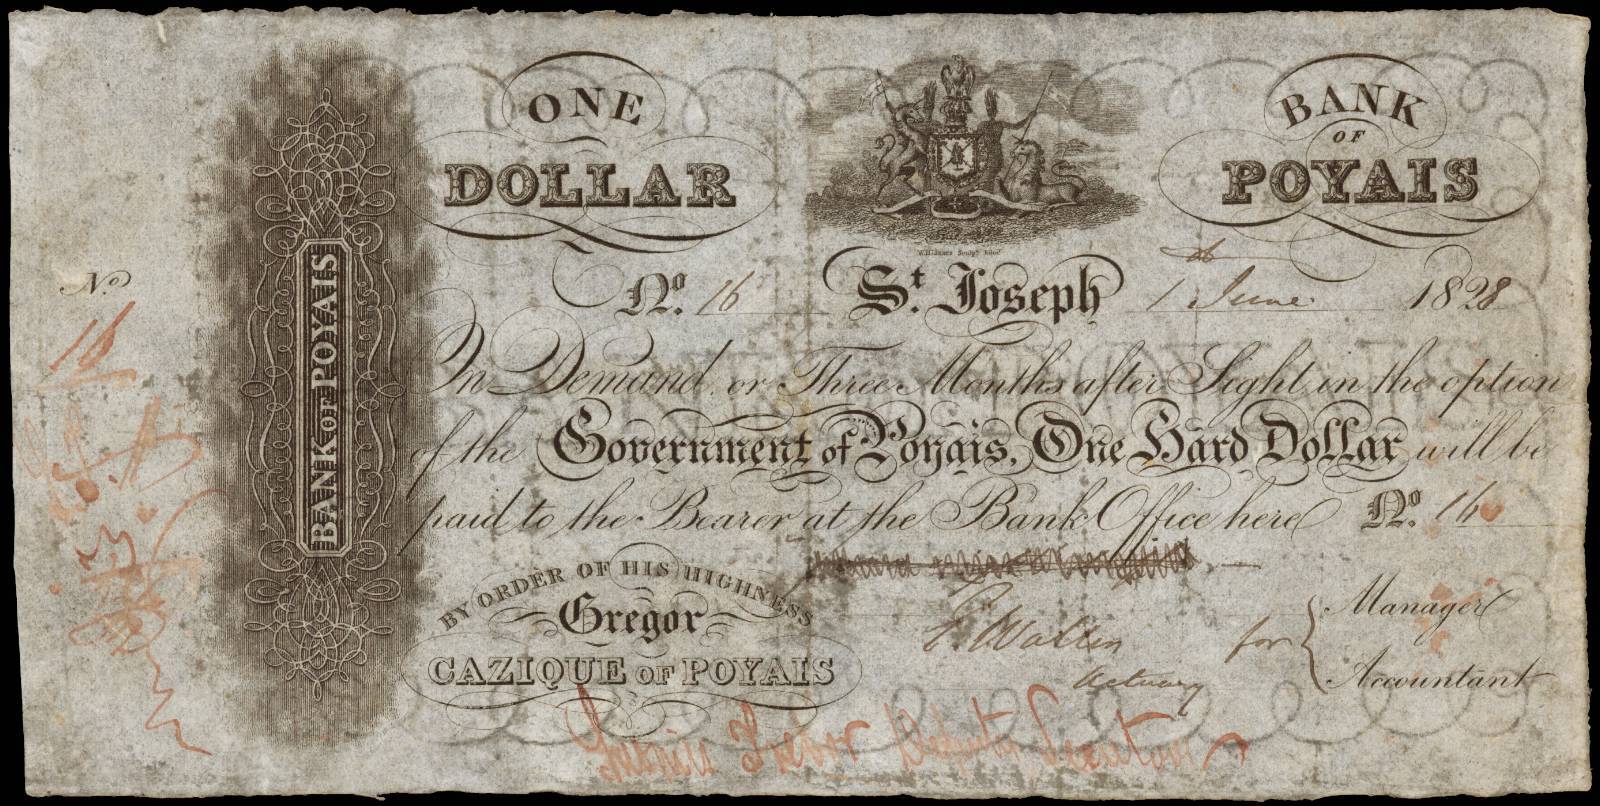 ONE
DOLLAR
BANK
OF
POYAIS
BANK OF POYAIS
No.
16
No. 16
St. Joseph
1 June 1828
On Demand, or Three Months after Sight in the option
of the Government of Poyais, One Hard Dollar will be
paid to the Bearer at the Bank Office here No. 16
BY ORDER OF HIS HIGHNESS
Gregor
CAZIQUE OF POYAIS
for
Manager
Accountant
Actuary